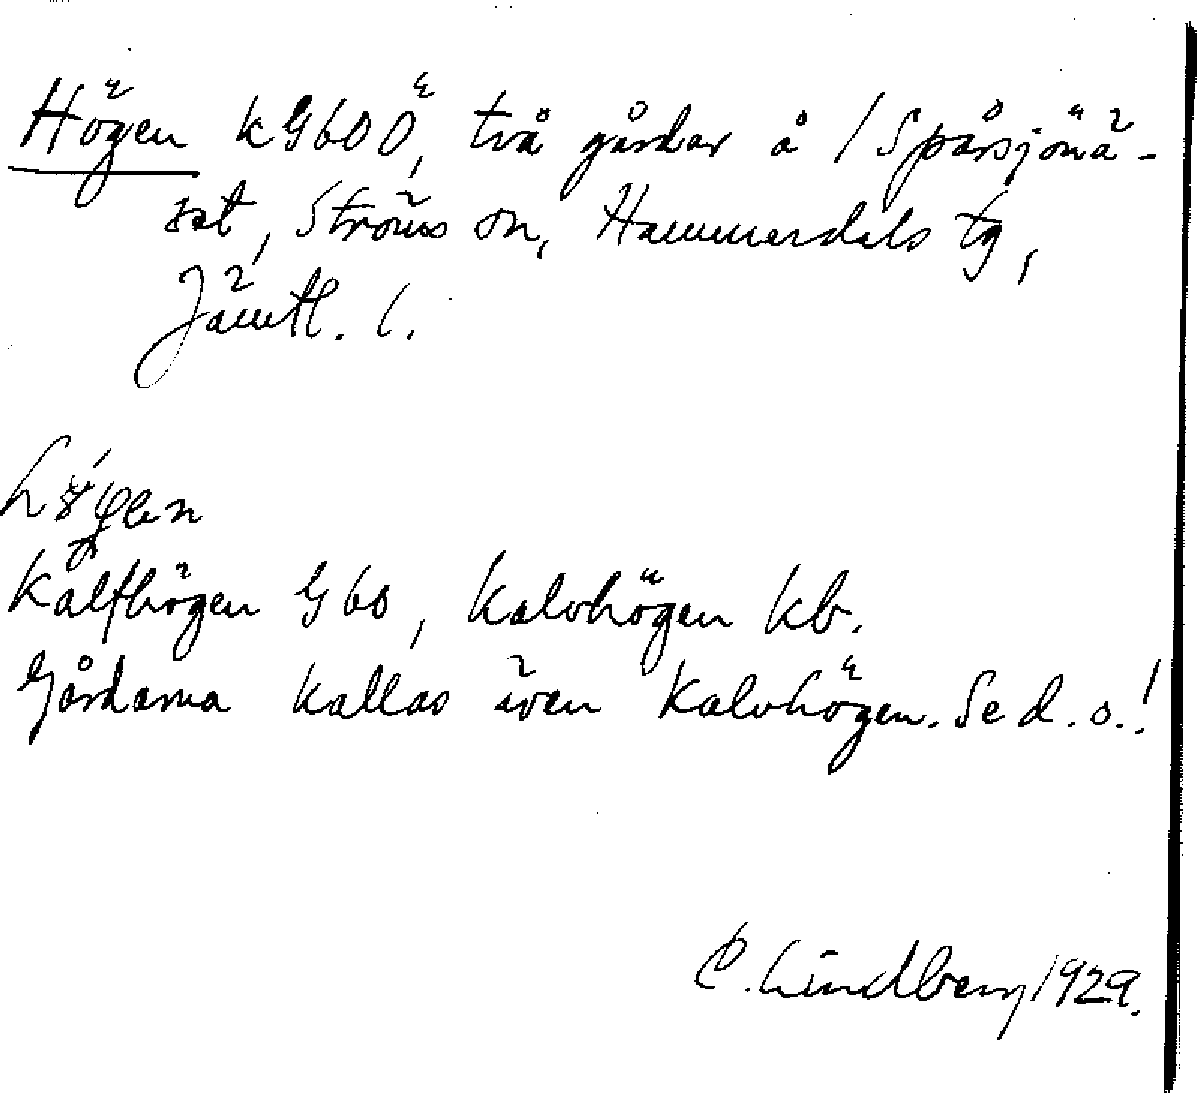 Högen kG60Ö, två gårdar å / Spårsjönä-
set, Ströms sn, Hammerdals tg,
Jämtl. l.
Kalfhögen G60, Kalvhögen kb.
Gårdarna kallas även Kalvhögen. Se d. o.!
C. Lindberg 1929.